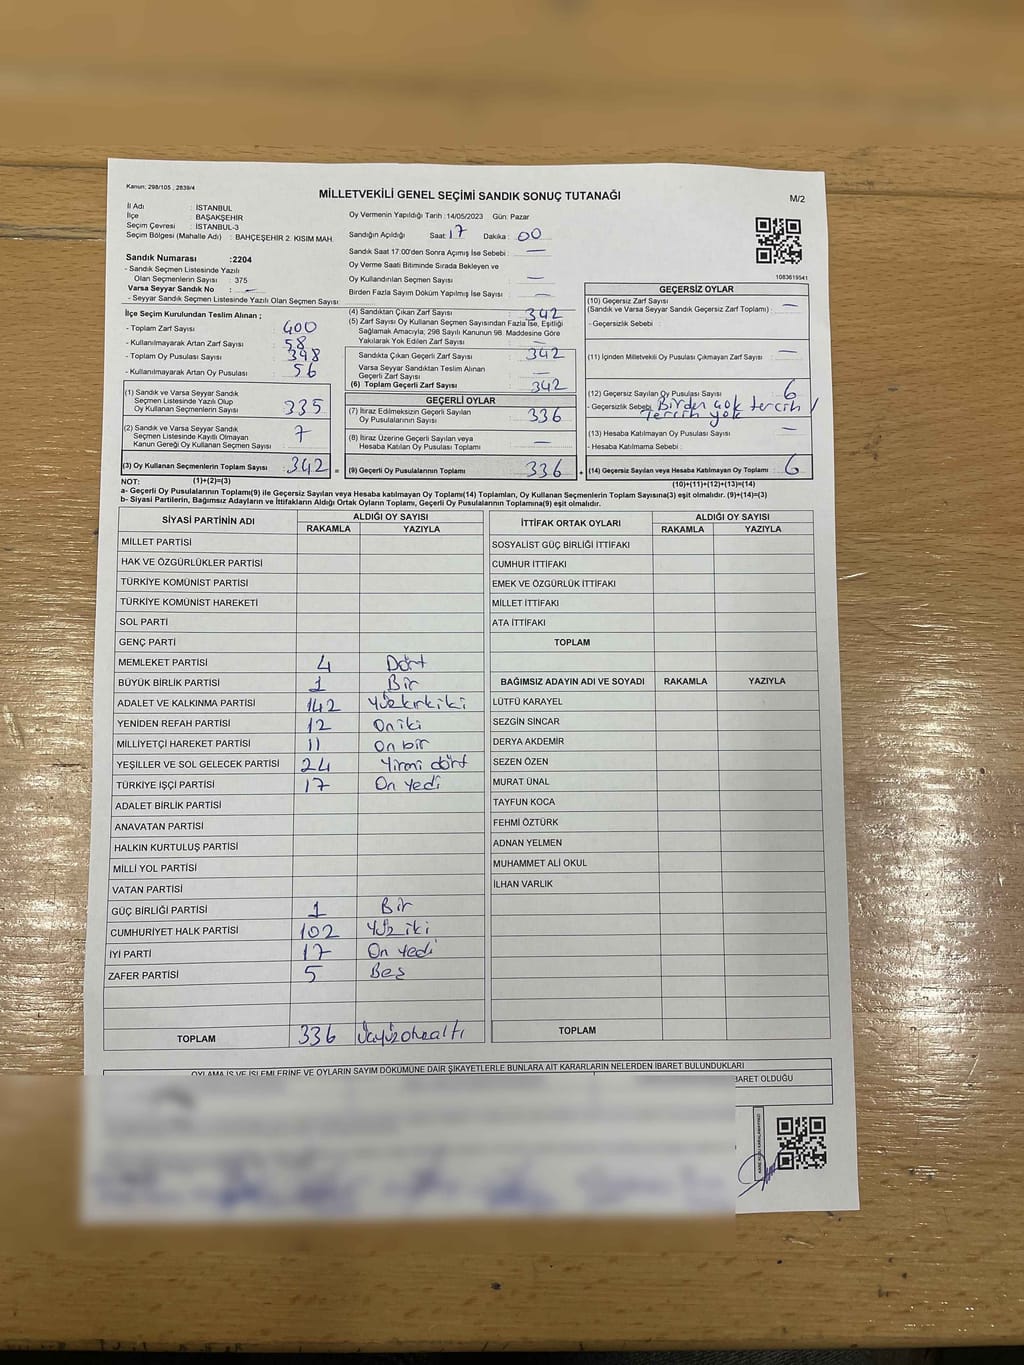 Kanun: 298/105 , 2839/4
MİLLETVEKİLİ GENEL SEÇİMİ SANDIK SONUÇ TUTANAĞI
M/2
İl Adı : İSTANBUL
İlçe : BAŞAKŞEHİR
Seçim Çevresi : İSTANBUL-3
Seçim Bölgesi (Mahalle Adı) : BAHÇEŞEHİR 2. KISIM MAH.
Sandık Numarası :2204
- Sandık Seçmen Listesinde Yazılı
Olan Seçmenlerin Sayısı : 375
Varsa Seyyar Sandık No : —
- Seyyar Sandık Seçmen Listesinde Yazılı Olan Seçmen Sayısı :
Oy Vermenin Yapıldığı Tarih : 14/05/2023 Gün: Pazar
Sandığın Açıldığı Saat: 17 Dakika : 00
Sandık Saat 17:00'den Sonra Açımış İse Sebebi : —
Oy Verme Saati Bitiminde Sırada Bekleyen ve
Oy Kullandırılan Seçmen Sayısı : —
Birden Fazla Sayım Döküm Yapılmış İse Sayısı : —
1083619541
İlçe Seçim Kurulundan Teslim Alınan ;
- Toplam Zarf Sayısı : 400
- Kullanılmayarak Artan Zarf Sayısı : 58
- Toplam Oy Pusulası Sayısı : 398
- Kullanılmayarak Artan Oy Pusulası : 56
(1) Sandık ve Varsa Seyyar Sandık
Seçmen Listesinde Yazılı Olup
Oy Kullanan Seçmenlerin Sayısı : 335
(2) Sandık ve Varsa Seyyar Sandık
Seçmen Listesinde Kayıtlı Olmayan
Kanun Gereği Oy Kullanan Seçmen Sayısı : 7
(3) Oy Kullanan Seçmenlerin Toplam Sayısı : 342 =
(1)+(2)=(3)
(4) Sandıktan Çıkan Zarf Sayısı : 342
(5) Zarf Sayısı Oy Kullanan Seçmen Sayısından Fazla İse, Eşitliği
Sağlamak Amacıyla; 298 Sayılı Kanunun 98. Maddesine Göre
Yakılarak Yok Edilen Zarf Sayısı : —
Sandıkta Çıkan Geçerli Zarf Sayısı : 342
Varsa Seyyar Sandıktan Teslim Alınan
Geçerli Zarf Sayısı : —
(6) Toplam Geçerli Zarf Sayısı : 342
GEÇERLİ OYLAR
(7) İtiraz Edilmeksizin Geçerli Sayılan
Oy Pusulalarının Sayısı : 336
(8) İtiraz Üzerine Geçerli Sayılan veya
Hesaba Katılan Oy Pusulası Toplamı : —
(9) Geçerli Oy Pusulalarının Toplamı : 336 +
GEÇERSİZ OYLAR
(10) Geçersiz Zarf Sayısı
(Sandık ve Varsa Seyyar Sandık Geçersiz Zarf Toplamı) : —
- Geçersizlik Sebebi :
(11) İçinden Milletvekili Oy Pusulası Çıkmayan Zarf Sayısı : —
(12) Geçersiz Sayılan Oy Pusulası Sayısı : 6
- Geçersizlik Sebebi : Birden çok tercih /
Tercih yok
(13) Hesaba Katılmayan Oy Pusulası Sayısı : —
- Hesaba Katılmama Sebebi :
(14) Geçersiz Sayılan veya Hesaba Katılmayan Oy Toplamı : 6
(10)+(11)+(12)+(13)=(14)
NOT:
a- Geçerli Oy Pusulalarının Toplamı(9) ile Geçersiz Sayılan veya Hesaba katılmayan Oy Toplamı(14) Toplamları, Oy Kullanan Seçmenlerin Toplam Sayısına(3) eşit olmalıdır. (9)+(14)=(3)
b- Siyasi Partilerin, Bağımsız Adayların ve İttifakların Aldığı Ortak Oyların Toplamı, Geçerli Oy Pusulalarının Toplamına(9) eşit olmalıdır.
SİYASİ PARTİNİN ADI ALDIĞI OY SAYISI
RAKAMLA YAZIYLA
MİLLET PARTİSİ
HAK VE ÖZGÜRLÜKLER PARTİSİ
TÜRKİYE KOMÜNİST PARTİSİ
TÜRKİYE KOMÜNİST HAREKETİ
SOL PARTİ
GENÇ PARTİ
MEMLEKET PARTİSİ 4 Dört
BÜYÜK BİRLİK PARTİSİ 1 Bir
ADALET VE KALKINMA PARTİSİ 142 Yüzkırkiki
YENİDEN REFAH PARTİSİ 12 On iki
MİLLİYETÇİ HAREKET PARTİSİ 11 On bir
YEŞİLLER VE SOL GELECEK PARTİSİ 24 Yirmi dört
TÜRKİYE İŞÇİ PARTİSİ 17 On Yedi
ADALET BİRLİK PARTİSİ
ANAVATAN PARTİSİ
HALKIN KURTULUŞ PARTİSİ
MİLLİ YOL PARTİSİ
VATAN PARTİSİ
GÜÇ BİRLİĞİ PARTİSİ 1 Bir
CUMHURİYET HALK PARTİSİ 102 Yüz iki
İYİ PARTİ 17 On Yedi
ZAFER PARTİSİ 5 Beş
TOPLAM 336 Üçyüzotuzaltı
İTTİFAK ORTAK OYLARI ALDIĞI OY SAYISI
RAKAMLA YAZIYLA
SOSYALİST GÜÇ BİRLİĞİ İTTİFAKI
CUMHUR İTTİFAKI
EMEK VE ÖZGÜRLÜK İTTİFAKI
MİLLET İTTİFAKI
ATA İTTİFAKI
TOPLAM
BAĞIMSIZ ADAYIN ADI VE SOYADI RAKAMLA YAZIYLA
LÜTFÜ KARAYEL
SEZGİN SİNCAR
DERYA AKDEMİR
SEZEN ÖZEN
MURAT ÜNAL
TAYFUN KOCA
FEHMİ ÖZTÜRK
ADNAN YELMEN
MUHAMMET ALİ OKUL
İLHAN VARLIK
TOPLAM
OYLAMA İŞ VE İŞLEMLERİNE VE OYLARIN SAYIM DÖKÜMÜNE DAİR ŞİKAYETLERLE BUNLARA AİT KARARLARIN NELERDEN İBARET BULUNDUKLARI
BARET OLDUĞU